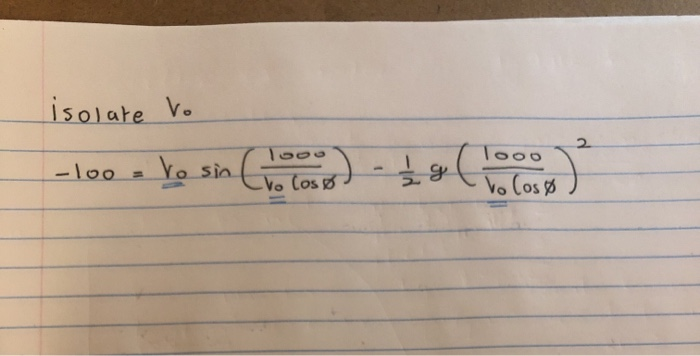 isolate V₀
-100 = V₀ sin (1000 / V₀ Cos ø) - 1/2 g (1000 / V₀ Cos ø)²